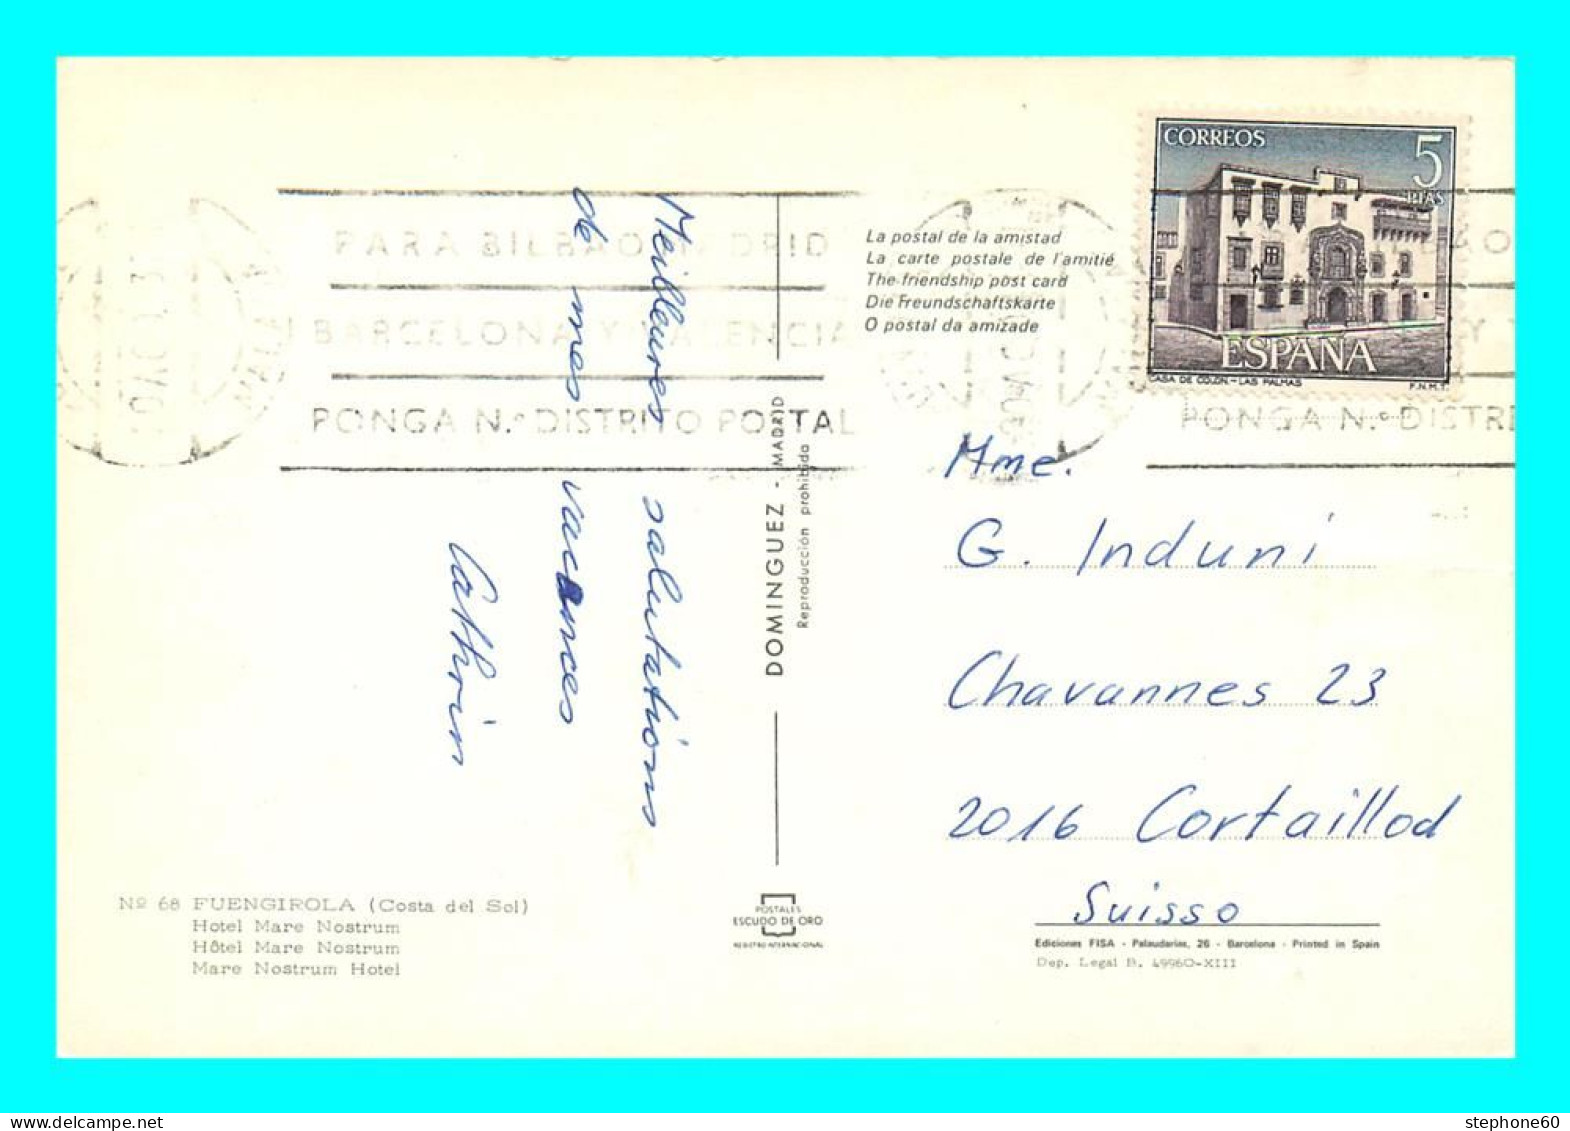 CORREOS
5
PTAS
ESPAÑA
CASA DE COLON.- LAS PALMAS
F.N.M.T.
PARA BILBAO MADRID
BARCELONA Y VALENCIA
PONGA N.º DISTRITO POSTAL
PONGA N.º DISTRI
La postal de la amistad
La carte postale de l'amitié
The friendship post card
Die Freundschaftskarte
O postal da amizade
Meilleures salutations
de mes vacances
Cathrin
DOMINGUEZ - MADRID
Reproducción prohibida
Mme.
G. Induni
Chavannes 23
2016 Cortaillod
Suisso
Nº 68 FUENGIROLA (Costa del Sol)
Hotel Mare Nostrum
Hôtel Mare Nostrum
Mare Nostrum Hotel
POSTALES
ESCUDO DE ORO
REGISTRO INTERNACIONAL
Ediciones FISA - Palaudarias, 26 - Barcelona - Printed in Spain
Dep. Legal B. 49960-XIII
stephone60